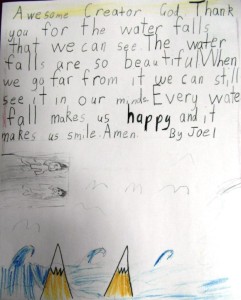 Awesome Creator God Thank
you for the water falls
that we can see. The water
falls are so beautiful When
we go far from it we can still
see it in our minds. Every water
fall makes us happy and it
makes us smile. Amen. By Joel